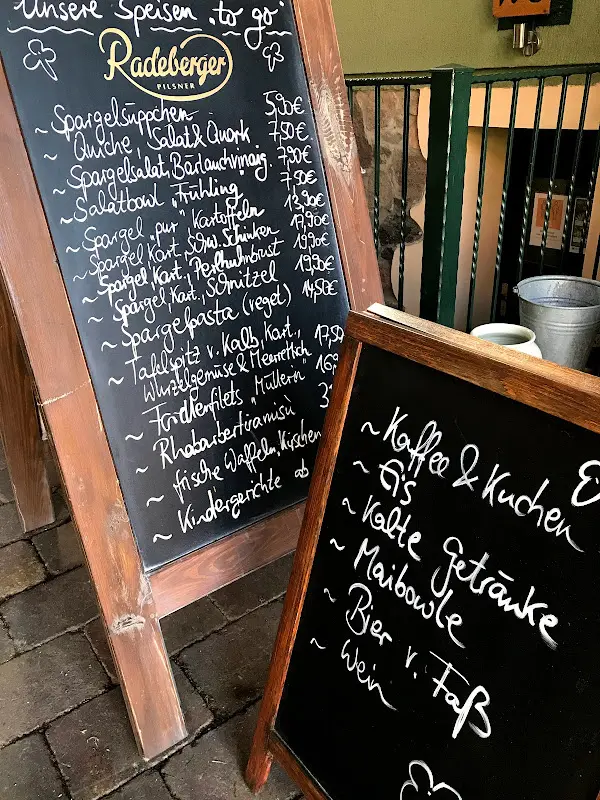 Unsere Speisen „to go"
Radeberger
PILSNER
~ Spargelsüppchen 5,90€
~ Quiche, Salat & Quark 7,50€
~ Spargelsalat, Bärlauchvinaig. 7,90€
~ Salatbowl „Frühling" 7,50€
~ Spargel „pur" Kartoffeln 13,90€
~ Spargel Kart., Schw. Schinken 17,90€
~ Spargel Kart., Perlhuhnbrust 19,90€
~ Spargel Kart., Schnitzel 19,90€
~ Spargelpasta (veget) 14,50€
~ Tafelspitz v. Kalb, Kart., 17,50
Wurzelgemüse & Meerrettich
~ Forellenfilets „Müllerin" 16,
~ Rhabarbertiramisù
~ frische Waffeln, Kirschen
~ Kindergerichte ab
~ Kaffee & Kuchen
~ Eis
~ Kalte Getränke
~ Maibowle
~ Bier v. Faß
~ Wein